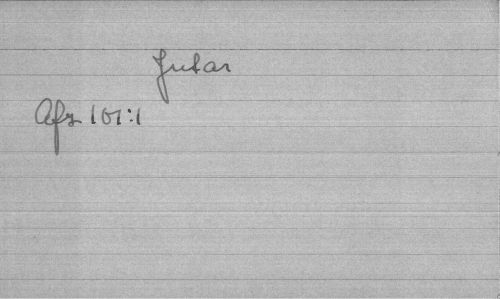 Jutar
Afz 101:1